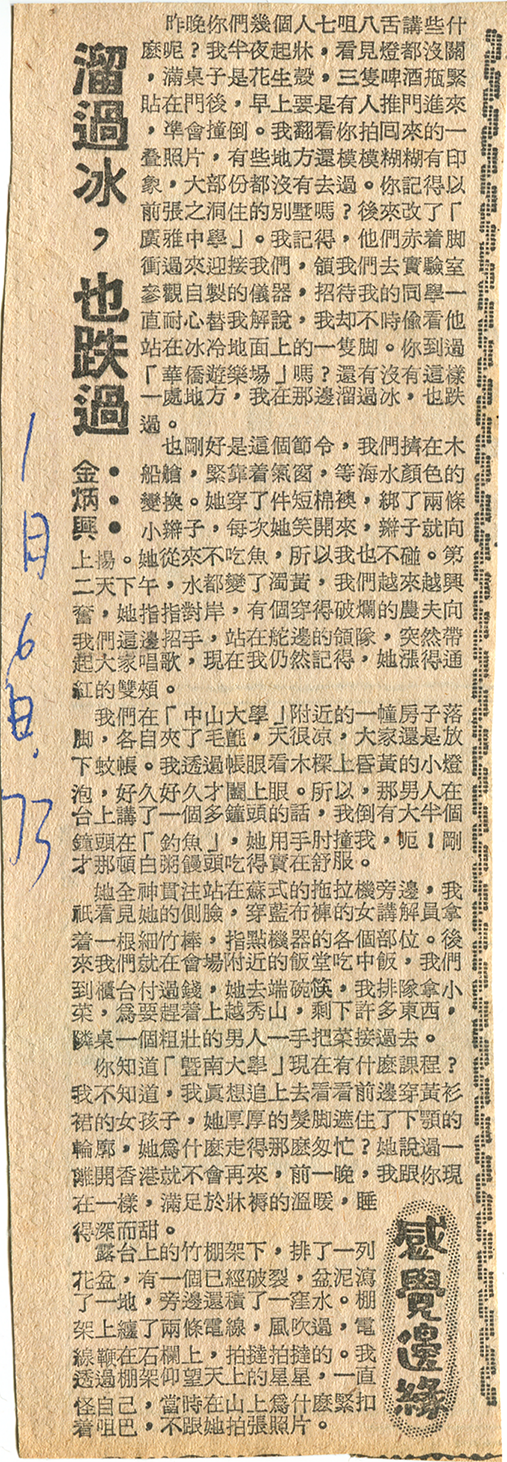 溜過冰,也跌過
金炳興
昨晚你們幾個人七咀八舌講些什
麽呢?我半夜起牀,看見燈都沒關
,滿桌子是花生殼,三隻啤酒瓶緊
貼在門後,早上要是有人推門進來
,準會撞倒。我翻看你拍回來的一
叠照片,有些地方還模模糊糊有印
象,大部份都沒有去過。你記得以
前張之洞住的別墅嗎?後來改了「
廣雅中學」。我記得,他們赤着脚
衝過來迎接我們,領我們去實驗室
參觀自製的儀器,招待我的同學一
直耐心替我解說,我却不時偷看他
站在冰冷地面上的一隻脚。你到過
「華僑遊樂場」嗎?還有沒有這樣
一處地方,我在那邊溜過冰,也跌
過。
也剛好是這個節令,我們擠在木
船艙,緊靠着氣窗,等海水顏色的
變換。她穿了件短棉襖,綁了兩條
小辮子,每次她笑開來,辮子就向
上揚。她從來不吃魚,所以我也不碰。第
二天下午,水都變了濁黃,我們越來越興
奮,她指指對岸,有個穿得破爛的農夫向
我們這邊招手,站在舵邊的領隊,突然帶
起大家唱歌,現在我仍然記得,她漲得通
紅的雙頰。
我們在「中山大學」附近的一幢房子落
脚,各自夾了毛氈,天很凉,大家還是放
下蚊帳。我透過帳眼看木樑上昏黃的小燈
泡,好久好久才闔上眼。所以,那男人在
台上講了一個多鐘頭的話,我倒有大半個
鐘頭在「釣魚」,她用手肘撞我,呃!剛
才那頓白粥饅頭吃得實在舒服。
她全神貫注站在蘇式的拖拉機旁邊,我
祇看見她的側臉,穿藍布褲的女講解員拿
着一根細竹棒,指點機器的各個部位。後
來我們就在會場附近的飯堂吃中飯,我們
到櫃台付過錢,她去端碗筷,我排隊拿小
菜,爲要趕着上越秀山,剩下許多東西,
隣桌一個粗壯的男人一手把菜接過去。
你知道「暨南大學」現在有什麽課程?
我不知道,我眞想追上去看看前邊穿黃衫
裙的女孩子,她厚厚的髮脚遮住了下顎的
輪廓,她爲什麽走得那麽匆忙?她說過一
離開香港就不會再來,前一晚,我跟你現
在一樣,滿足於牀褥的溫暖,睡
得深而甜。
露台上的竹棚架下,排了一列
花盆,有一個已經破裂,盆泥瀉
了一地,旁邊還積了一窪水。棚
架上纏了兩條電線,風吹過,電
線鞭在石欄上,拍撻拍撻的。我
透過棚架仰望天上的星星,一直
怪自己,當時在山上爲什麽緊扣
着咀巴,不跟她拍張照片。
感覺邊緣
1月6日,73